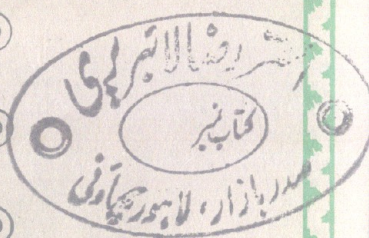 رضا لائبریری
کتاب نمبر
صدر بازار، لاہور چھاؤنی